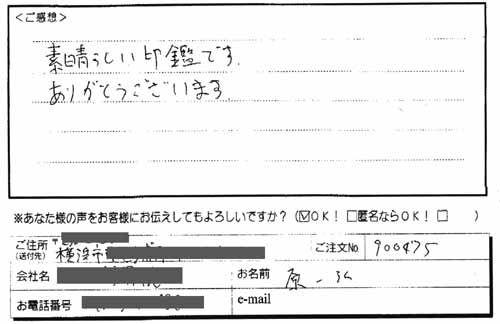 <ご感想>
素晴らしい印鑑です.
ありがとうございます.
※あなた様の声をお客様にお伝えしてもよろしいですか? (☑OK! □匿名ならOK! □ )
ご住所 〒
(送付先) 横浜市
ご注文No 900475
会社名
お名前 原
お電話番号
e-mail